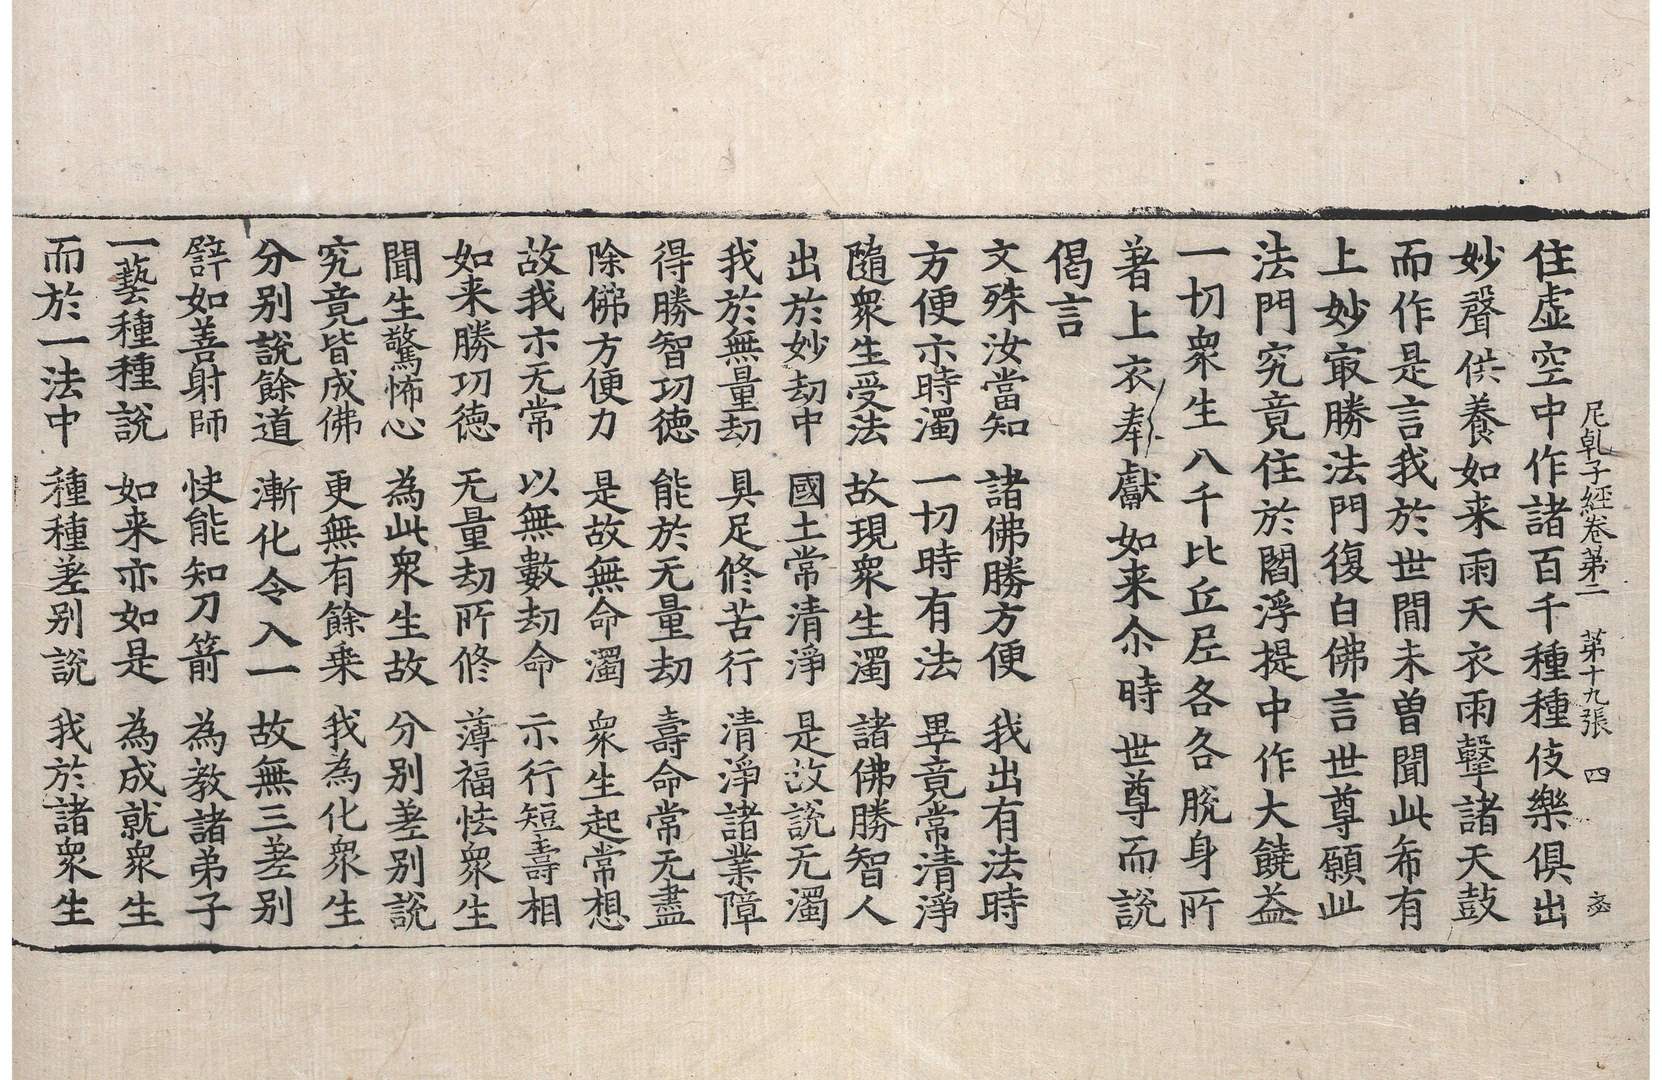 尼乹子經卷第二 第十九張 四
住虛空中作諸百千種種伎樂俱出
妙聲供養如来雨天衣雨鼙諸天鼓
而作是言我於世間未曽聞此希有
上妙㝡勝法門復白佛言世尊願此
法門究竟住於閻浮提中作大饒益
一切衆生八千比丘尼各各脫身所
著上衣奉獻如来尒時世尊而說
偈言
文殊汝當知 諸佛勝方便 我出有法時
方便示時濁 一切時有法 畢竟常清淨
隨衆生受法 故現衆生濁 諸佛勝智人
出於妙劫中 國土常清淨 是故說无濁
我於無量劫 具足修苦行 清淨諸業障
得勝智功德 能於无量劫 壽命常无盡
除佛方便力 是故無命濁 衆生起常想
故我示无常 以無數劫命 示行短壽相
如来勝功德 无量劫所修 薄福怯衆生
聞生驚怖心 為此衆生故 分别差别說
究竟皆成佛 更無有餘乗 我為化衆生
分别說餘道 漸化令入一 故無三差别
譬如善射師 快能知刀箭 為教諸弟子
一藝種種說 如来亦如是 為成就衆生
而於一法中 種種差别說 我於諸衆生